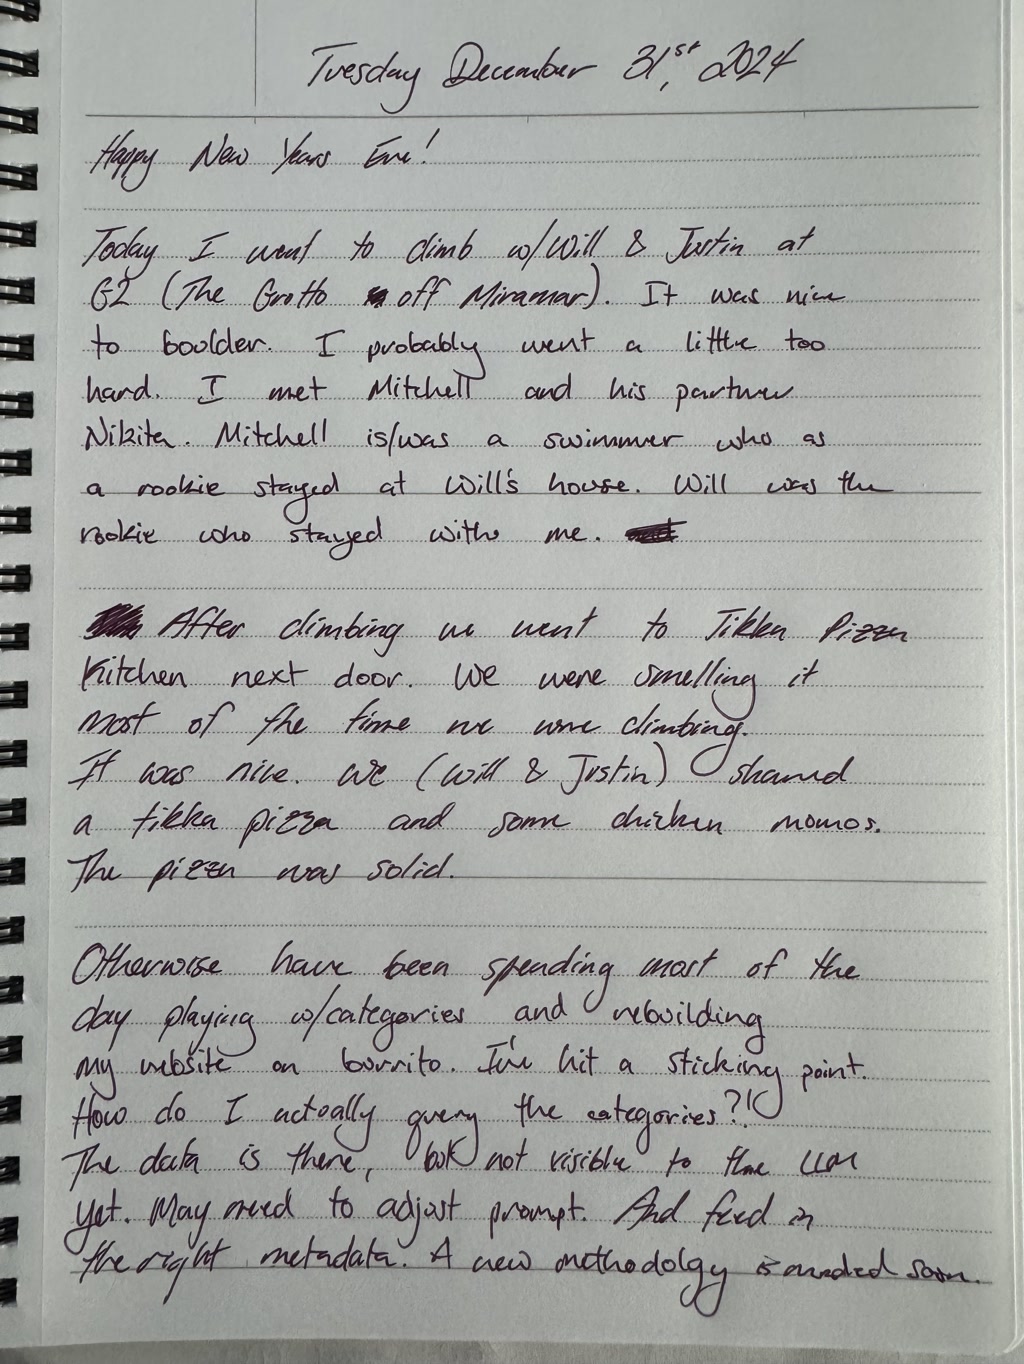 Tuesday December 31st, 2024
Happy New Years Eve!
Today I went to climb w/Will & Justin at
G2 (The Grotto off Miramar). It was nice
to boulder. I probably went a little too
hard. I met Mitchell and his partner
Nikita. Mitchell is/was a swimmer who as
a rookie stayed at Will's house. Will was the
rookie who stayed with me.
After climbing we went to Tikka Pizza
Kitchen next door. We were smelling it
most of the time we were climbing.
It was nice. We (Will & Justin) shared
a tikka pizza and some chicken momos.
The pizza was solid.
Otherwise have been spending most of the
day playing w/categories and rebuilding
my website on burrito. I've hit a sticking point.
How do I actually query the categories?!
The data is there, but not visible to the LLM
yet. May need to adjust prompt. And feed in
the right metadata. A new methodolgy is needed soon.